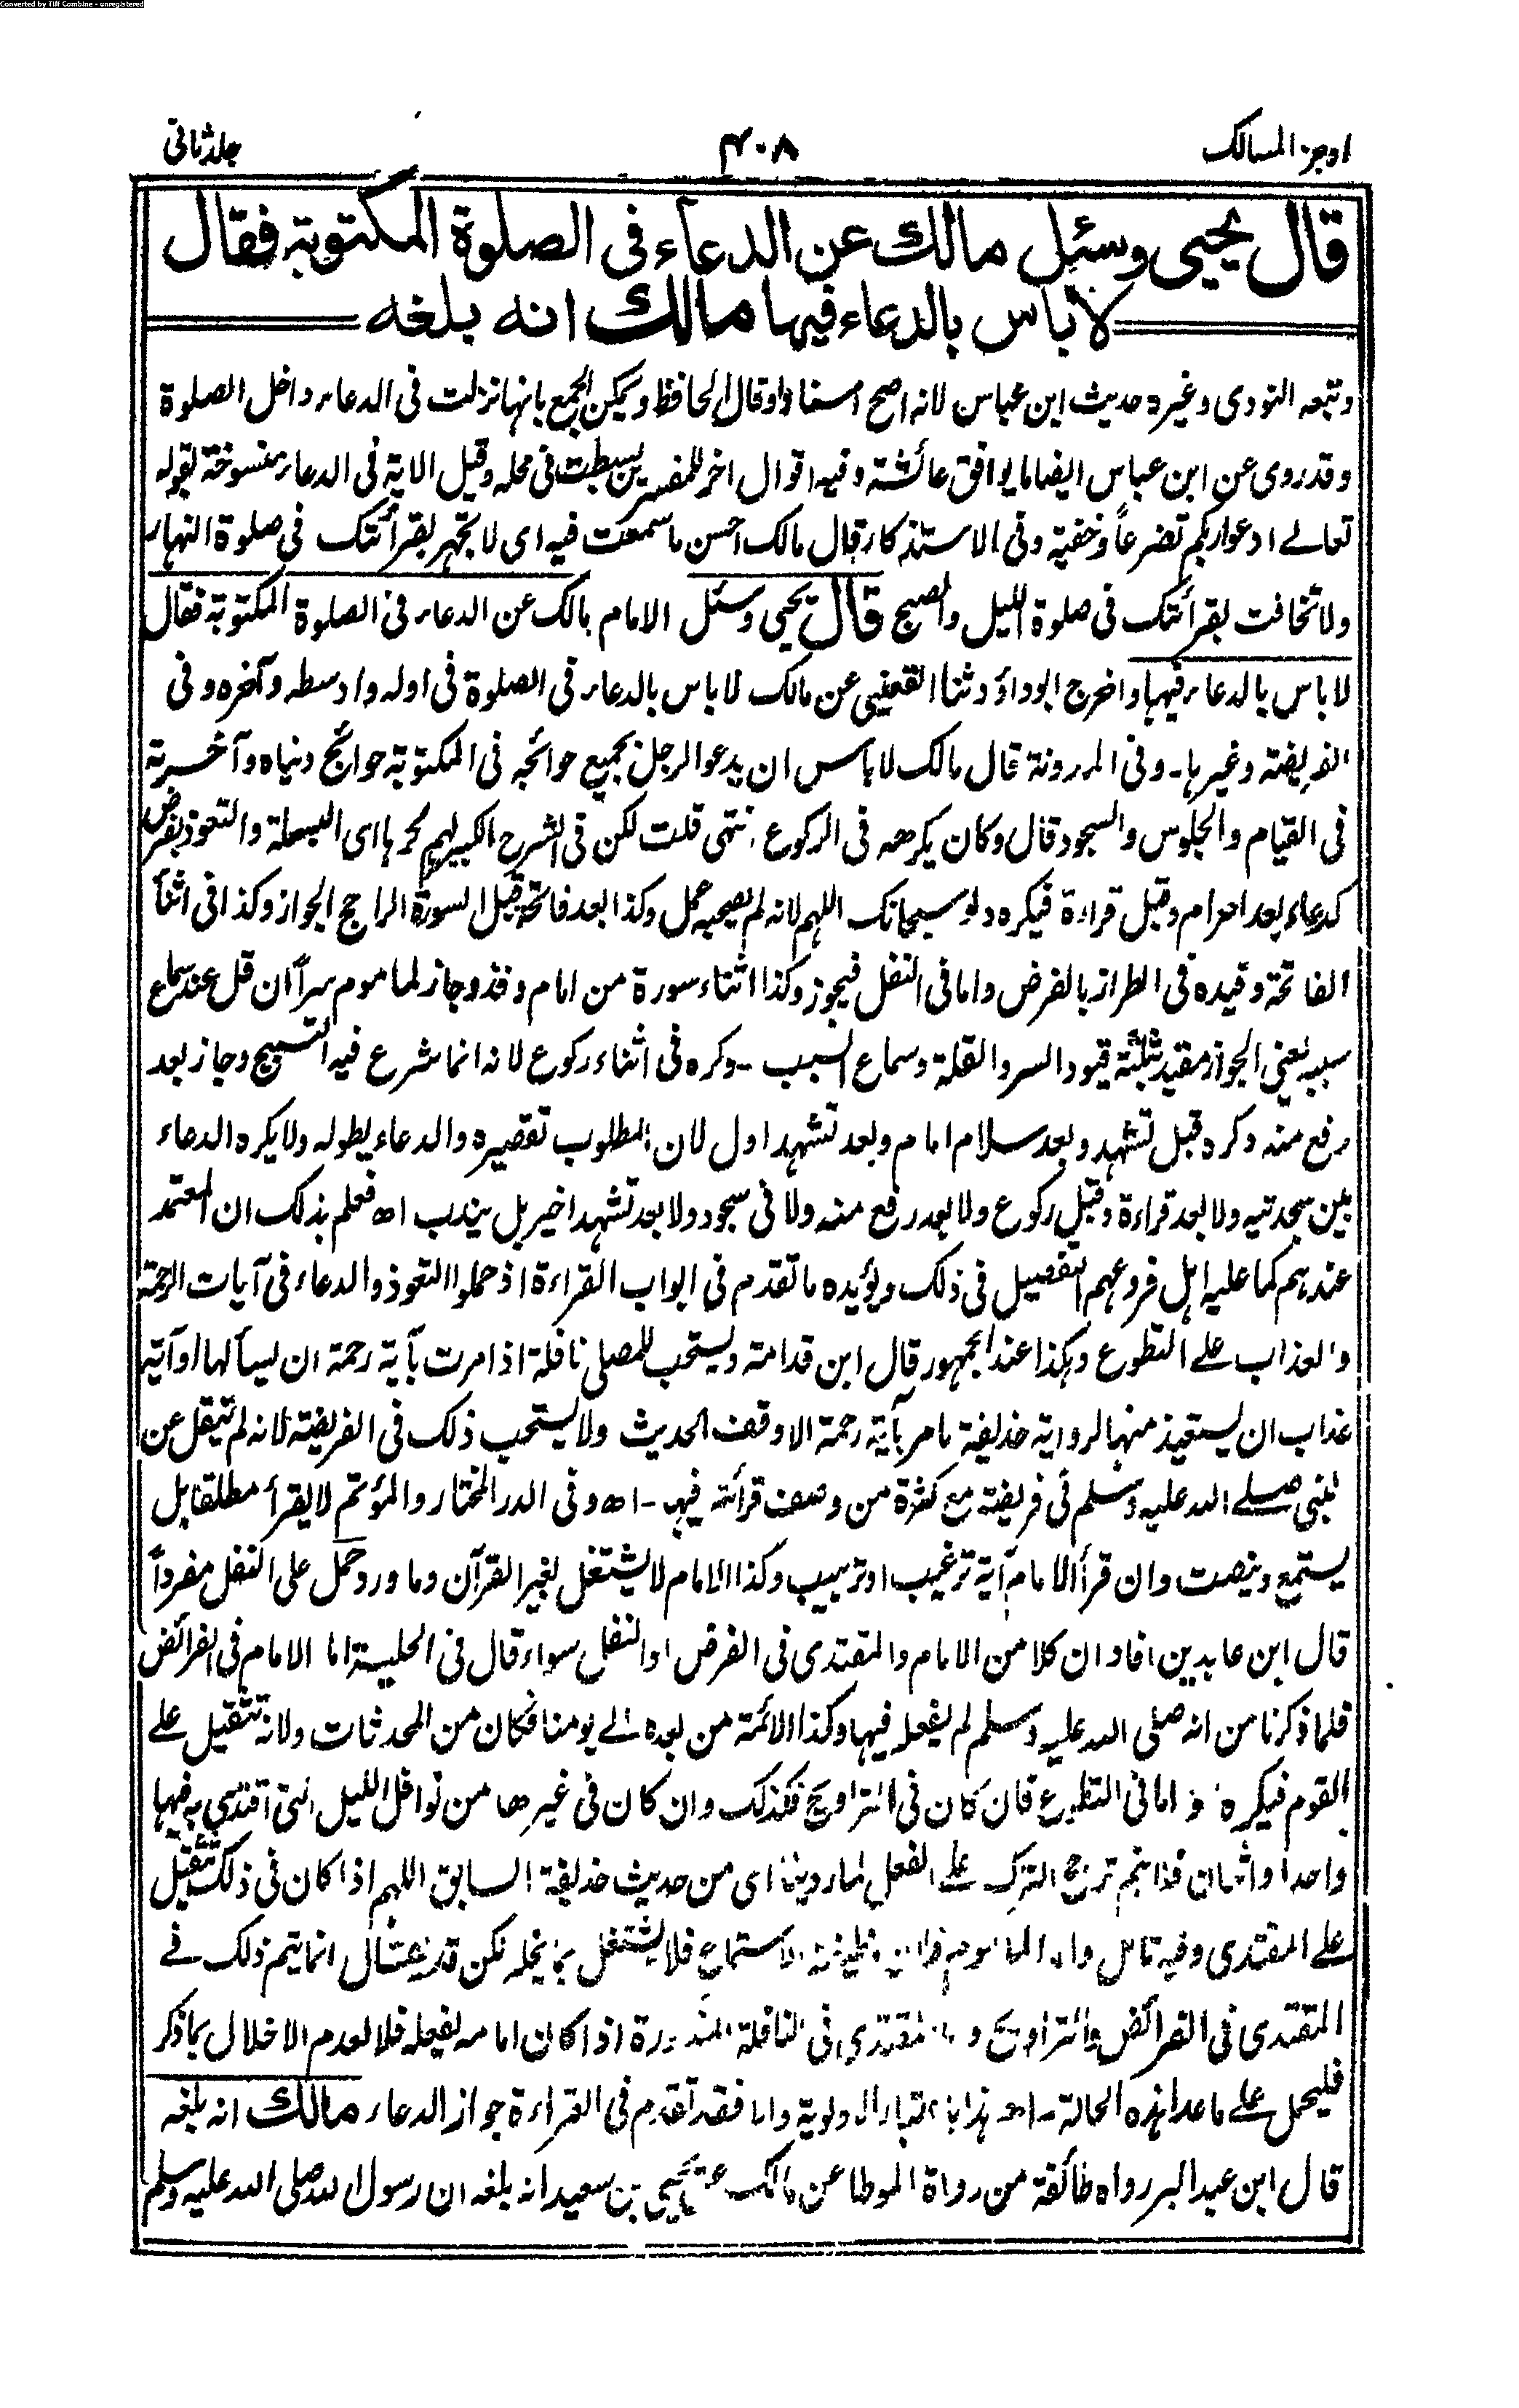 Converted by Tiff Combine - unregistered
اوجز المسالك
۴۰۸
جلد ثانی
قال يحيى وسئل مالك عن الدعاء في الصلوة المكتوبة فقال
لاباس بالدعاء فيها مالك انه بلغه
وتبعه النووى وغيره حديث ابن عباس لانه اصح اسنادا وقال الحافظ ويمكن الجمع بانها نزلت فى الدعاء داخل الصلوة
وقد روى عن ابن عباس ايضا ما يوافق عائشة وفيه اقوال اخر للمفسرين بسطت فى محله وقيل الاية فى الدعاء منسوخة بقوله
تعالے ادعوا ربكم تضرعاً وخفية وفى الاستذكار قال مالك احسن ما سمعت فيه اى لا تجهر بقرأتك فى صلوة النهار
ولا تخافت بقرأتك فى صلوة الليل والصبح قال يحيى وسئل الامام مالك عن الدعاء فى الصلوة المكتوبة فقال
لاباس بالدعاء فيها واخرج ابوداؤد ثنا القعنبى عن مالك لاباس بالدعاء فى الصلوة فى اوله واوسطه وآخره وفى
الفريضة وغيرها۔ وفى المدونة قال مالك لاباس ان يدعو الرجل بجميع حوائجه فى المكتوبة حوائج دنياه وآخرته
فى القيام والجلوس والسجود قال وكان يكرهه فى الركوع انتهى قلت لكن فى الشرح الكبير لهم كرها اى البسملة والتعوذ بفرض
كدعاء بعد احرام وقبل قراءة فيكره ولو سبحانك اللهم لانه لم يصحبه عمل وكذا بعد فاتحة قبل السورة الراجح الجواز وكذا فى اثناء
الفاتحة وقيده فى الطراز بالفرض واما فى النفل فيجوز وكذا اثناء سورة من امام وفذ وجاز لماموم سراً ان قل عند سماع
سببه يعنى الجواز مقيد بثلثة قيود السر والقلة وسماع السبب۔ وكره فى اثناء ركوع لانه انما شرع فيه التسبيح وجاز بعد
رفع منه وكره قبل تشهد وبعد سلام امام وبعد تشهد اول لان المطلوب تقصيره والدعاء يطوله ولا يكره الدعاء
بين سجدتيه ولا بعد قراءة وقبل ركوع ولا بعد رفع منه ولا فى سجود ولا بعد تشهد اخير بل يندب اھ فعلم بذلك ان المعتمد
عندهم كما عليه اهل فروعهم التفصيل فى ذلك ويؤيده ما تقدم فى ابواب القراءة اذ حملوا التعوذ والدعاء فى آيات الرحمة
والعذاب على التطوع وهكذا عند الجمهور قال ابن قدامة ويستحب للمصلى نافلة اذا مرت بآية رحمة ان يسألها او آية
عذاب ان يستعيذ منها لرواية حذيفة ما مر بآية رحمة الا وقف الحديث ولا يستحب ذلك فى الفريضة لانه لم ينقل عن
النبى صلے الله عليه وسلم فى فريضة مع كثرة من وصف قرأته فيها۔ اھ وفى الدر المختار والمؤتم لا يقرأ مطلقا بل
يستمع وينصت وان قرأ الامام آية ترغيب او ترهيب وكذا الامام لا يشتغل بغير القرآن وما ورد حمل على النفل مفرداً
قال ابن عابدين افاد ان كلا من الامام والمقتدى فى الفرض او النفل سواء قال فى الحلية اما الامام فى الفرائض
فلما ذكرنا من انه صلى الله عليه وسلم لم يفعله فيها وكذا الائمة من بعده الے يومنا فكان من المحدثات ولانه تثقيل علے
القوم فيكره واما فى التطوع فان كان فى التراويح فكذلك وان كان فى غيرها من نوافل الليل التى اقتدى به فيها
واحد او اثنان فلا يتم ترجح الترك على الفعل لما روينا اى من حديث حذيفة السابق اللهم اذا كان فى ذلك تثقيل
على المقتدى وفيه تامل واما الماموم فلان وظيفته الاستماع فلا يشتغل بما يخله لكن قد يقال انما يتم ذلك فے
المقتدى فى الفرائض والتراويح واما المقتدى فى النافلة المذكورة اذا كان امامه يفعله فلا لعدم الاخلال بما ذكر
فليحمل علے ما عدا هذه الحالة۔ اھ هذا باعتبار الاولوية واما فقد تقدم فى القراءة جواز الدعاء مالك انه بلغه
قال ابن عبد البر رواه طائفة من رواة الموطا عن مالك عن يحيى بن سعيد انه بلغه ان رسول الله صلى الله عليه وسلم